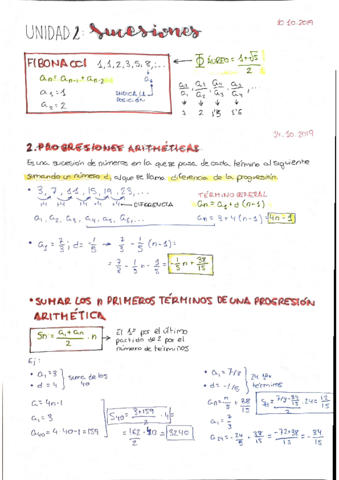 10.10.2019
UNIDAD 2: Sucesiones
FIBONACCI 1,1,2,3,5,8,...
an = an-1 + an-2
a1 = 1
a2 = 2
INDICA LA POSICIÓN
Φ ÁUREO = 1+√5 / 2
a2/a1, a3/a2, a4/a3, a5/a4, ...
1 2 1'5
14.10.2019
2. PROGRESIONES ARITMÉTICAS
Es una sucesión de números en la que se pasa de cada término al siguiente
sumando un número d, al que se llama diferencia de la progresión.
• 3, 7, 11, 15, 19, 23, ...
+4 +4 +4 +4 +4 → DIFERENCIA
a1, a2, a3, a4, a5, a6, ...
TÉRMINO GENERAL
an = a1 + d (n-1)
an = 3 + 4 (n-1) = 4n - 1
• a1 = 7/3 ; d = -1/5 → 7/3 - 1/5 (n-1) =
= 7/3 - 1/5 n - 1/5 = -1/5 n + 38/15
• SUMAR LOS n PRIMEROS TÉRMINOS DE UNA PROGRESIÓN
ARITMÉTICA
Sn = a1 + an / 2 · n
El 1º por el último
partido de 2 por el
número de términos
Ej:
• a1 = 3
• d = 4
suma de los 40
a = 4n-1
a1 = 3
a40 = 4·40-1 = 159
S40 = 3+159 / 2 · 4 =
= 162/2 · 40 = 3240
• a1 = 7/3
• d = -1/5
24 términos
a1 = 7/3
a24 = -24/5 + 38/15 = -72+38 / 15 = -34/15